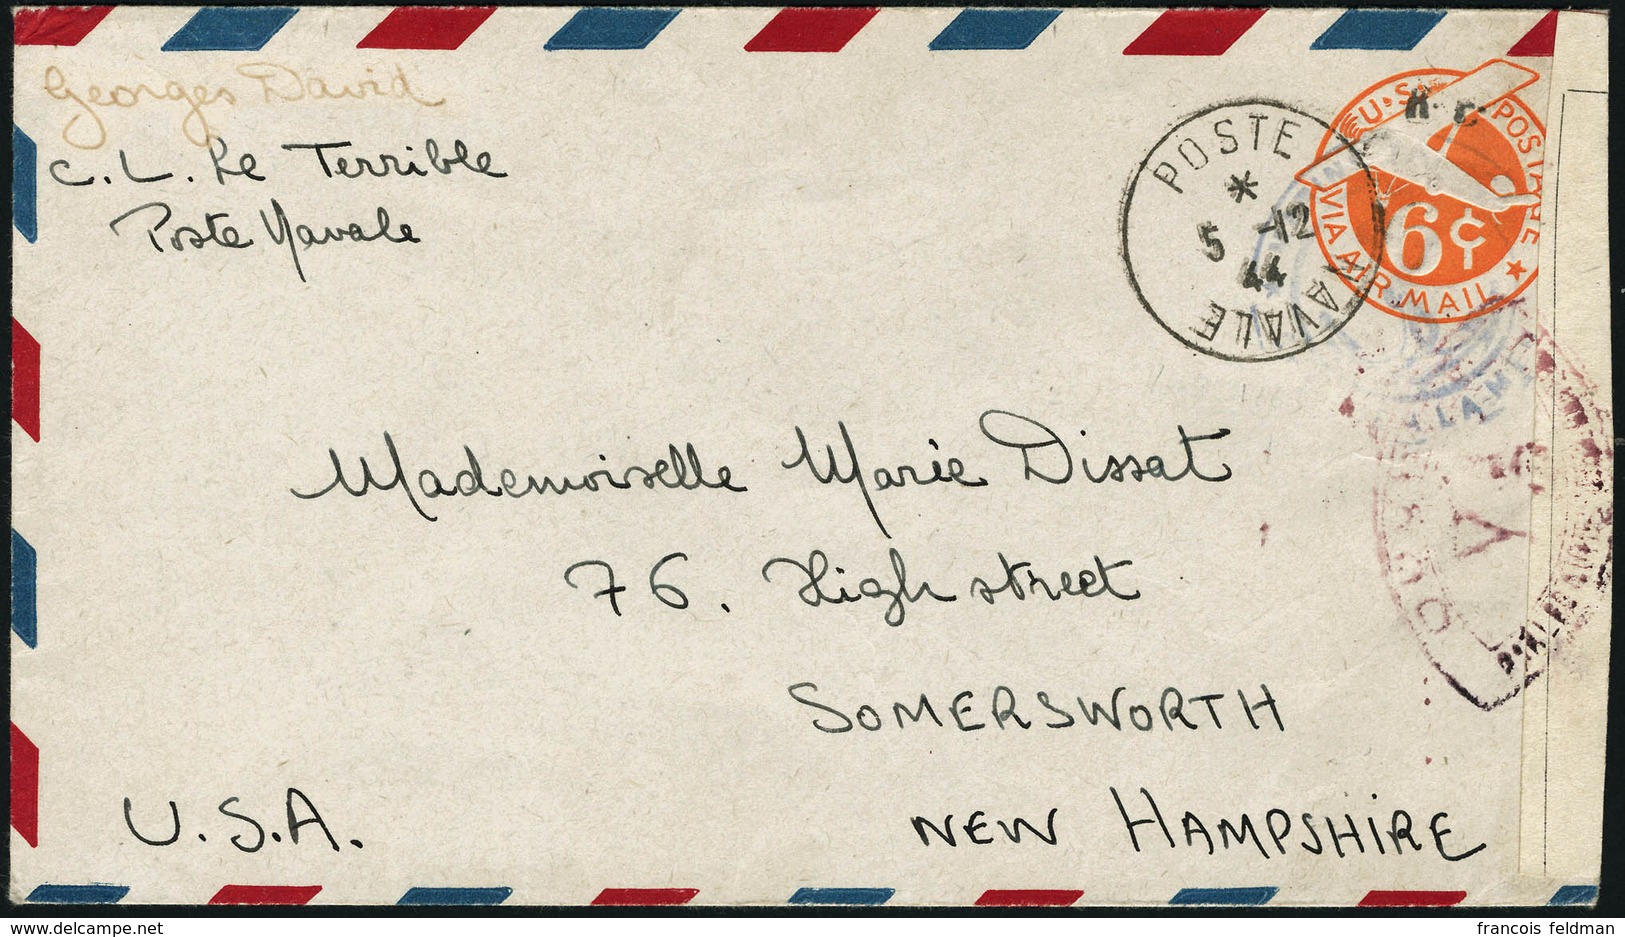 Georges David
C.L. Le Terrible
Poste Navale
POSTE
*
5 -12
44
NAVALE
U.S. POSTAGE
6¢
VIA AIR MAIL
Mademoiselle Marie Dissat
76. High street
SOMERSWORTH
U.S.A.
NEW HAMPSHIRE
francois feldman